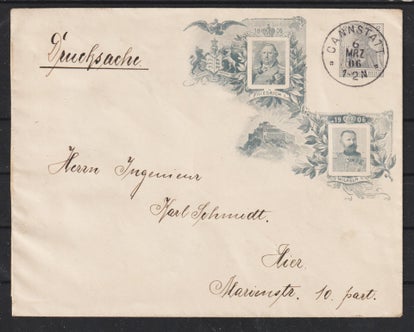 Drucksache.
1806
FRIEDRICH
CANNSTATT
6
MRZ
06
7-8N
2
1906
WILHELM
Herrn Ingenieur
Karl Schmidt.
Hier.
Marienstr. 10. part.